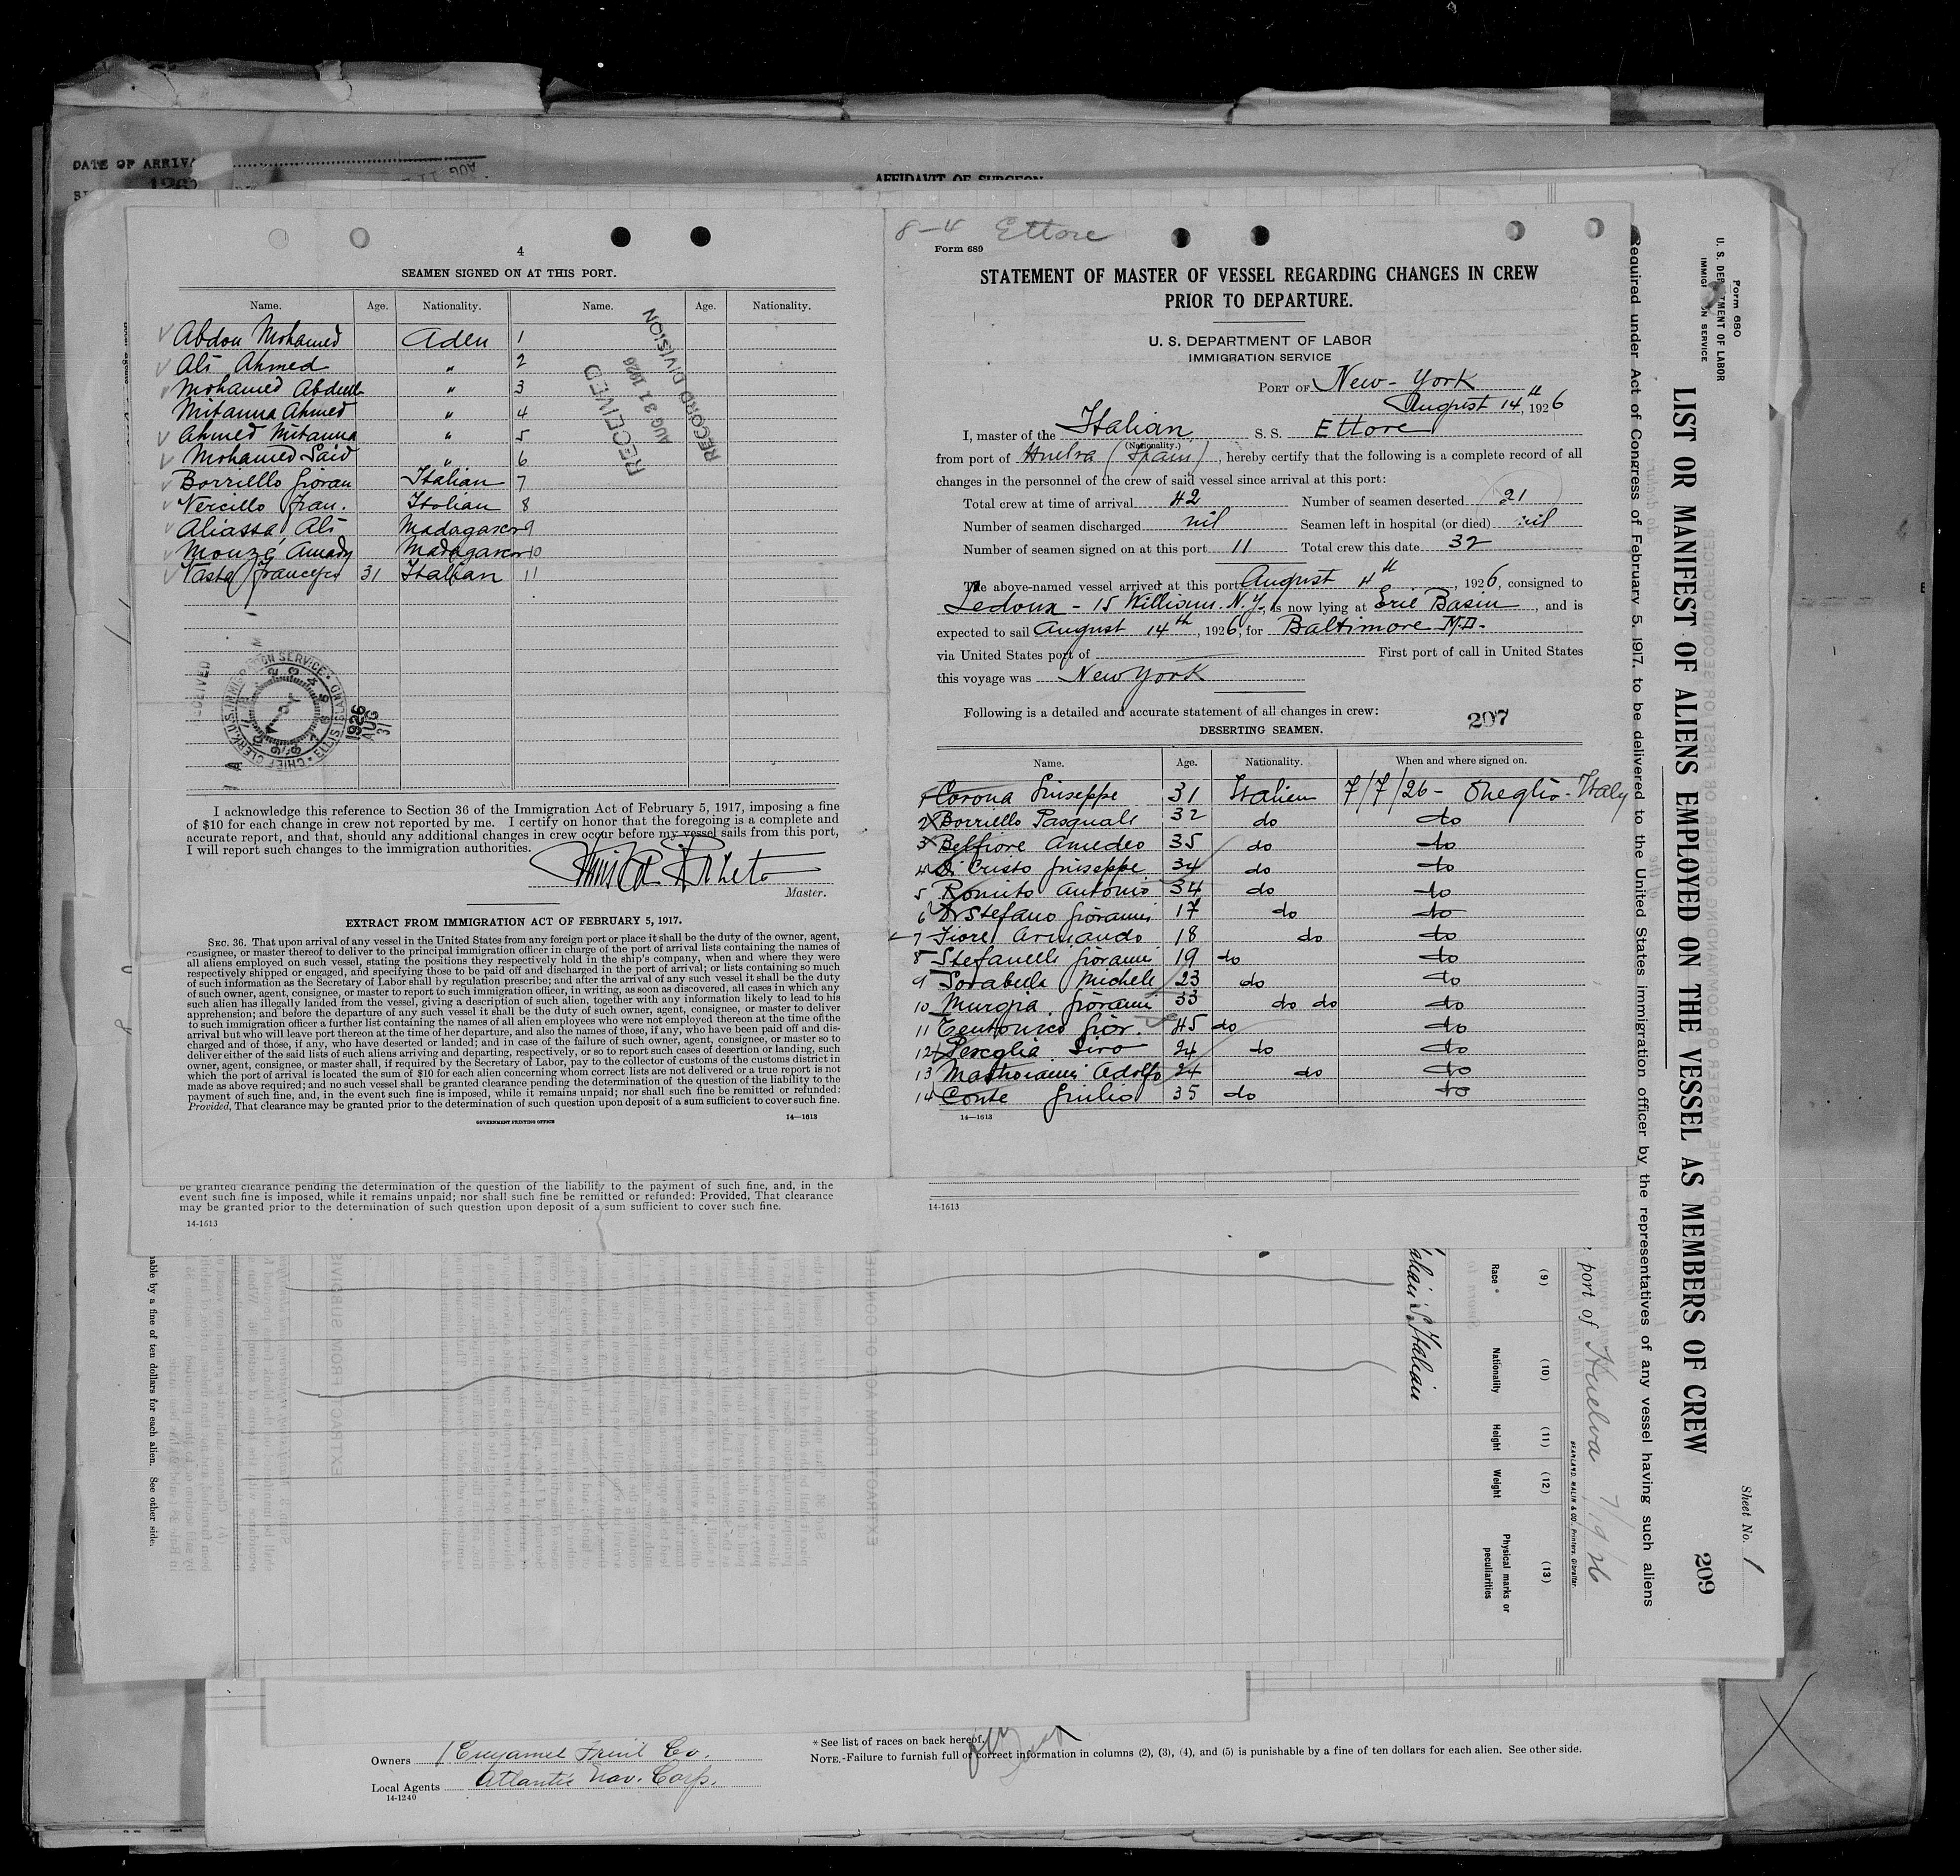 DATE OF ARRIVA
AFFIDAVIT OF SURGEON
4
SEAMEN SIGNED ON AT THIS PORT.
Name. Age. Nationality. Name. Age. Nationality.
Abdou Mohamed Aden 1
Ali Ahmed " 2
Mohamed Abdull " 3
Mitanna Ahmed " 4
Ahmed Mitanna " 5
Mohamed Said " 6
Borriello Giovan Italian 7
Vercillo Fran. Italian 8
Aliassa Ali Madagascar 9
Mouzé Amady Madagascar 10
Vasta Francesco 31 Italian 11
RECEIVED
AUG 31 1926
RECORD DIVISION
1926
AUG
31
I acknowledge this reference to Section 36 of the Immigration Act of February 5, 1917, imposing a fine
of $10 for each change in crew not reported by me. I certify on honor that the foregoing is a complete and
accurate report, and that, should any additional changes in crew occur before my vessel sails from this port,
I will report such changes to the immigration authorities.
Master.
EXTRACT FROM IMMIGRATION ACT OF FEBRUARY 5, 1917.
SEC. 36. That upon arrival of any vessel in the United States from any foreign port or place it shall be the duty of the owner, agent,
consignee, or master thereof to deliver to the principal immigration officer in charge of the port of arrival lists containing the names of
all aliens employed on such vessel, stating the positions they respectively hold in the ship's company, when and where they were
respectively shipped or engaged, and specifying those to be paid off and discharged in the port of arrival; or lists containing so much
of such information as the Secretary of Labor shall by regulation prescribe; and after the arrival of any such vessel it shall be the duty
of such owner, agent, consignee, or master to report to such immigration officer, in writing, as soon as discovered, all cases in which any
such alien has illegally landed from the vessel, giving a description of such alien, together with any information likely to lead to his
apprehension; and before the departure of any such vessel it shall be the duty of such owner, agent, consignee, or master to deliver
to such immigration officer a further list containing the names of all alien employees who were not employed thereon at the time of the
arrival but who will leave port thereon at the time of her departure, and also the names of those, if any, who have been paid off and dis-
charged and of those, if any, who have deserted or landed; and in case of the failure of such owner, agent, consignee, or master so to
deliver either of the said lists of such aliens arriving and departing, respectively, or so to report such cases of desertion or landing, such
owner, agent, consignee, or master shall, if required by the Secretary of Labor, pay to the collector of customs of the customs district in
which the port of arrival is located the sum of $10 for each alien concerning whom correct lists are not delivered or a true report is not
made as above required; and no such vessel shall be granted clearance pending the determination of the question of the liability to the
payment of such fine, and, in the event such fine is imposed, while it remains unpaid; nor shall such fine be remitted or refunded:
Provided, That clearance may be granted prior to the determination of such question upon deposit of a sum sufficient to cover such fine.
GOVERNMENT PRINTING OFFICE 14—1613
be granted clearance pending the determination of the question of the liability to the payment of such fine, and, in the
event such fine is imposed, while it remains unpaid; nor shall such fine be remitted or refunded: Provided, That clearance
may be granted prior to the determination of such question upon deposit of a sum sufficient to cover such fine.
14-1613
8-4 Ettore
Form 689
STATEMENT OF MASTER OF VESSEL REGARDING CHANGES IN CREW
PRIOR TO DEPARTURE.
U. S. DEPARTMENT OF LABOR
IMMIGRATION SERVICE
PORT OF New-York
August 14th, 1926
I, master of the Italian S. S. Ettore
(Nationality.)
from port of Huelva (Spain), hereby certify that the following is a complete record of all
changes in the personnel of the crew of said vessel since arrival at this port:
Total crew at time of arrival 42 Number of seamen deserted 21
Number of seamen discharged nil Seamen left in hospital (or died) nil
Number of seamen signed on at this port 11 Total crew this date 32
The above-named vessel arrived at this port August 4th, 1926, consigned to
Ledoux - 15 William. N.Y., is now lying at Erie Basin, and is
expected to sail August 14th, 1926, for Baltimore M.D.
via United States port of First port of call in United States
this voyage was New York
Following is a detailed and accurate statement of all changes in crew:
207
DESERTING SEAMEN.
Name. Age. Nationality. When and where signed on.
1 Corona Giuseppe 31 Italien 7/7/26 - Oneglia - Italy
2 Borriello Pasquale 32 do do
3 Belfiore Amedeo 35 do do
4 Di Cristo Giuseppe 34 do do
5 Romito Antonio 34 do do
6 Di Stefano Giovanni 17 do do
7 Fiore Armando 18 do do
8 Stefanelli Giovanni 19 do do
9 Sorabella Michele 23 do do
10 Murgia Giovanni 33 do do do
11 Giov. 45 do do
12 Perseglia Siro 24 do do
13 Adolfo 24 do do
14 Conte Giulio 35 do do
14—1613
14-1613
Form 680
U. S. DEPARTMENT OF LABOR
IMMIGRATION SERVICE
LIST OR MANIFEST OF ALIENS EMPLOYED ON THE VESSEL AS MEMBERS OF CREW
209
Sheet No. 1
Required under Act of Congress of February 5, 1917, to be delivered to the United States immigration officer by the representatives of any vessel having such aliens
port of Huelva 7/19/26
BEANLAND, MALIN & CO., Printers, Gibraltar.
(9) (10) (11) (12) (13)
Race * Nationality Height Weight Physical marks or peculiarities
Italian
able by a fine of ten dollars for each alien. See other side.
Owners Cuyamel Fruit Co.
Local Agents Atlantic Nav. Corp.
14-1240
* See list of races on back hereof.
NOTE.-Failure to furnish full or correct information in columns (2), (3), (4), and (5) is punishable by a fine of ten dollars for each alien. See other side.